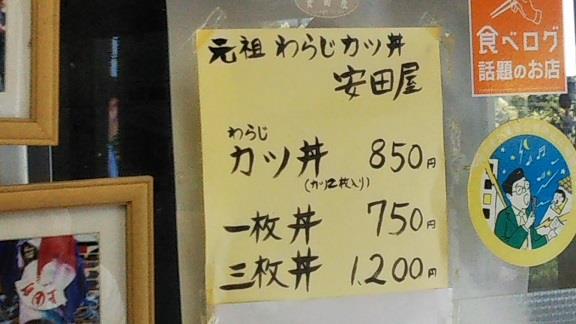 元祖 わらじカツ丼
安田屋
わらじ
カツ丼 850円
(カツ2枚入り)
一枚丼 750円
三枚丼 1,200円
食べログ
話題のお店